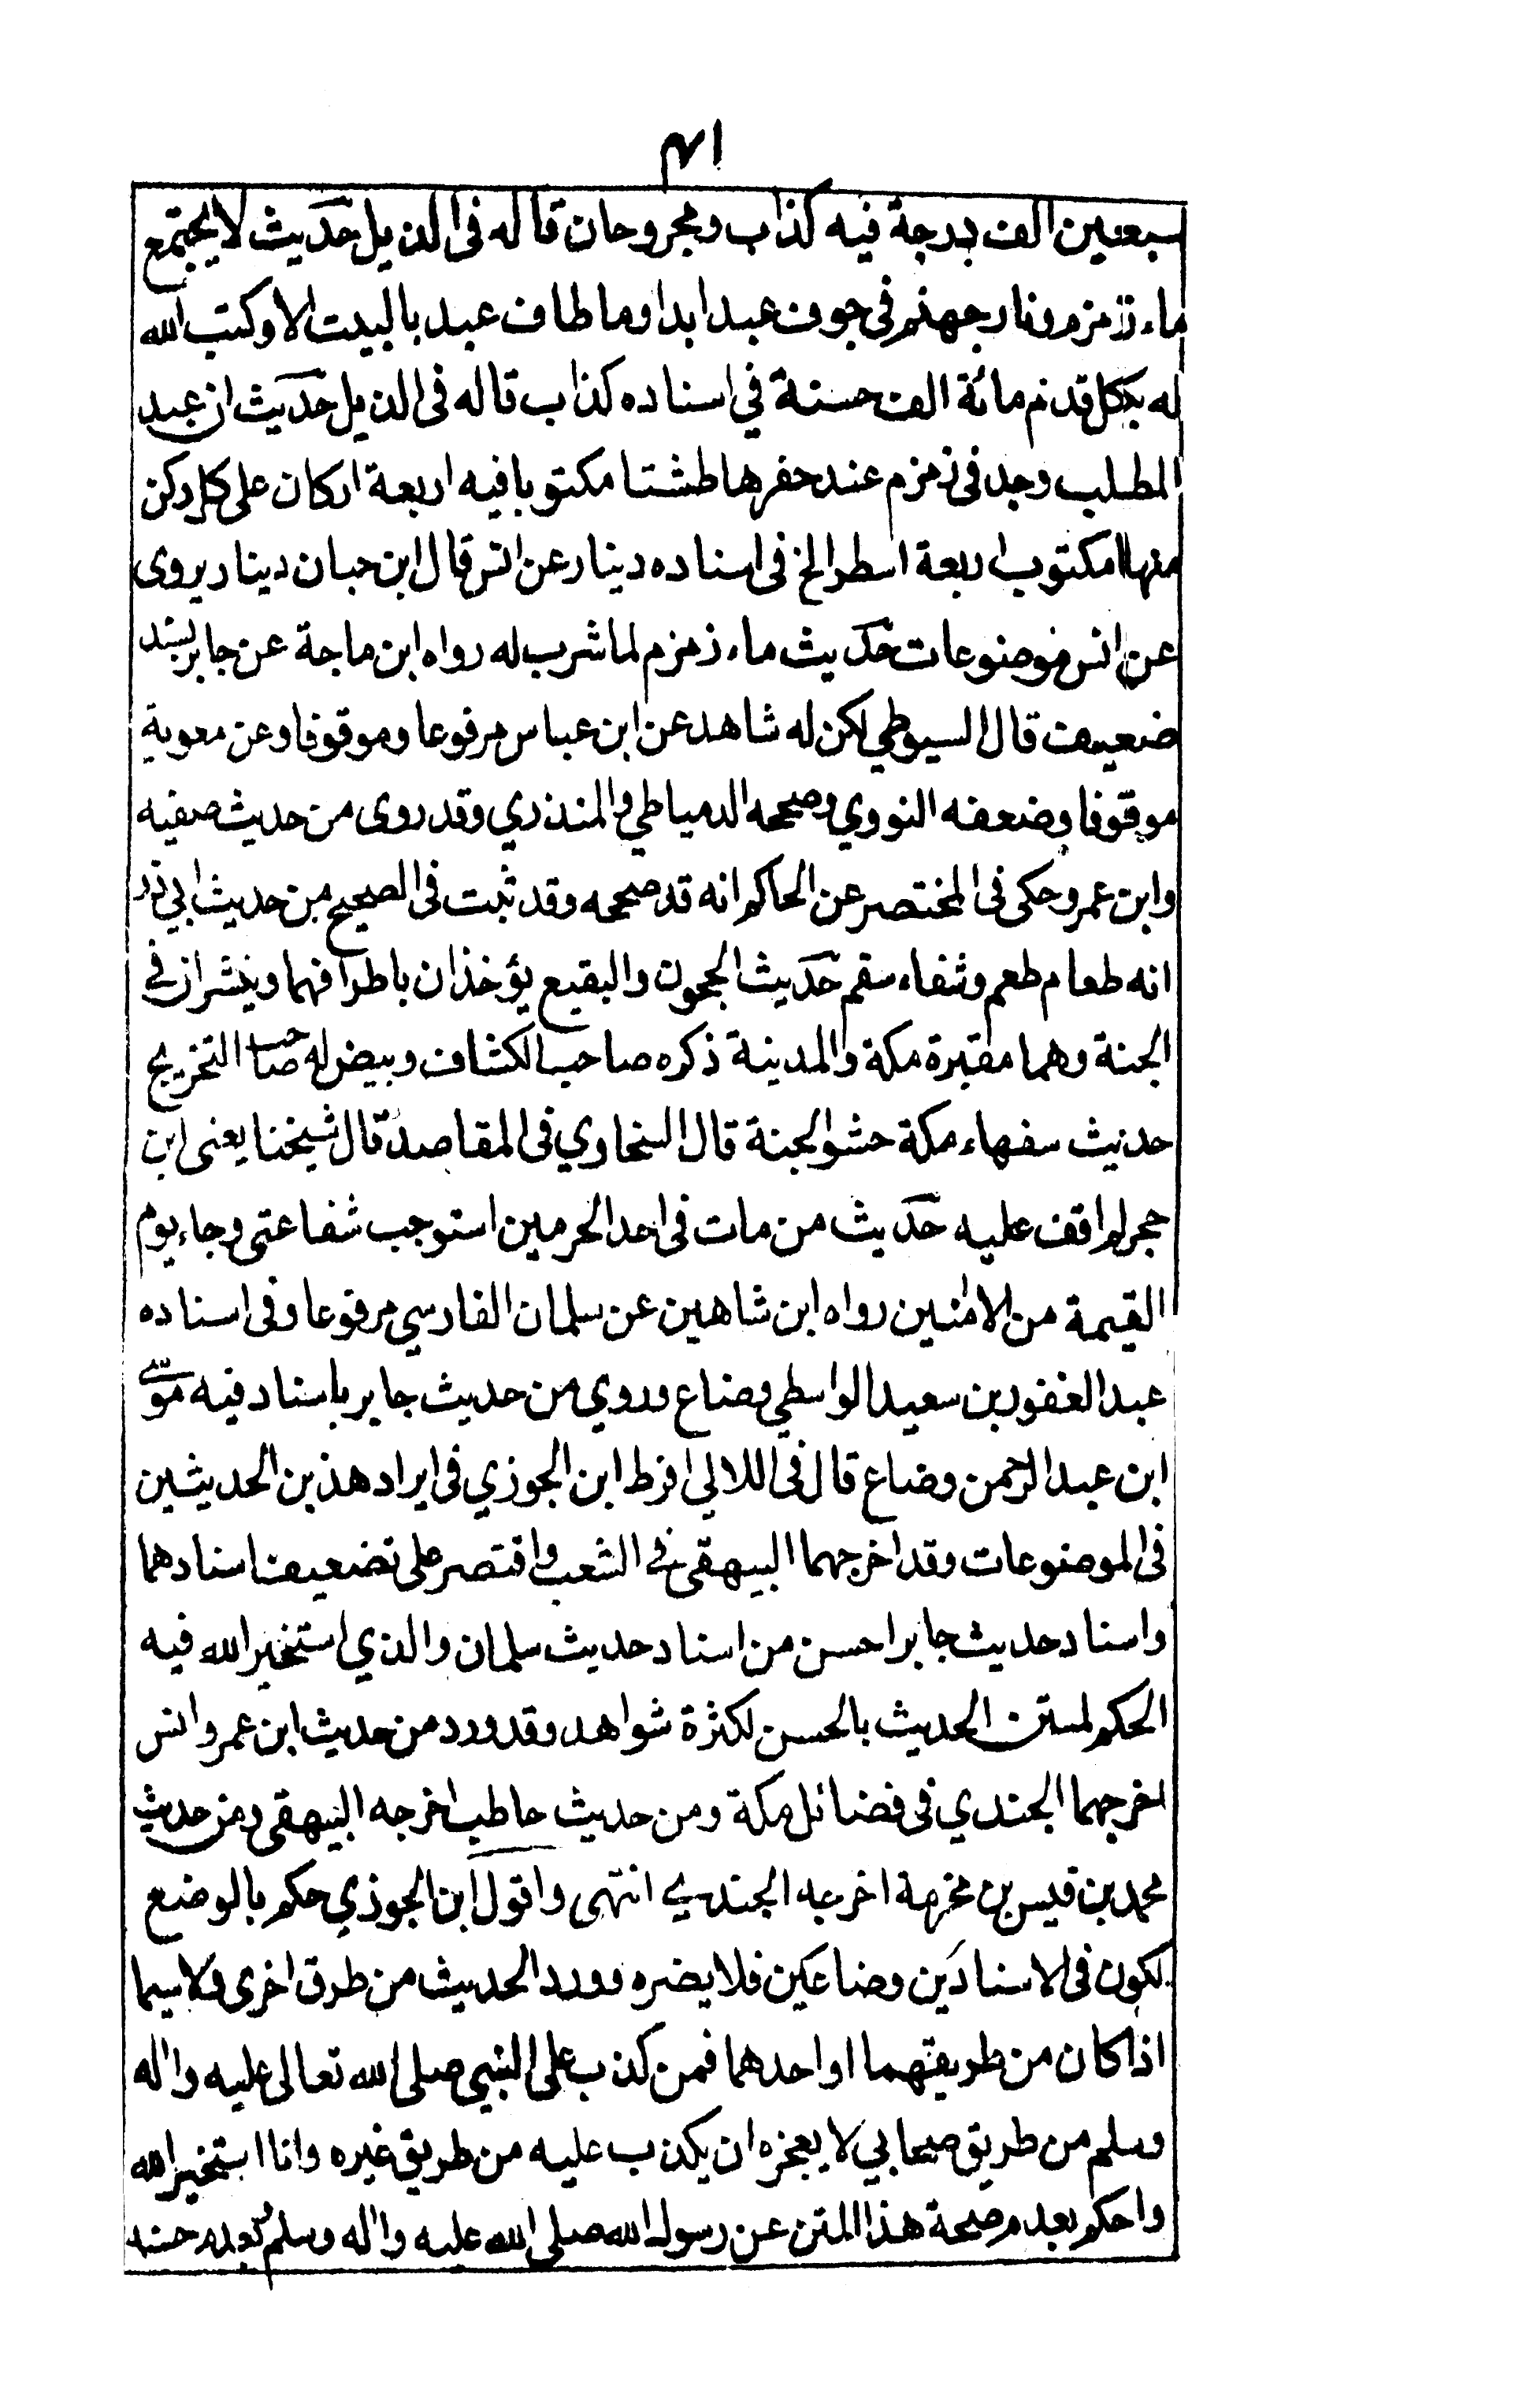 ٤١
سبعين الف بدرجة فيه كذاب ومجروحان قاله فى الذيل حديث لا يجتمع
ماء زمزم ونار جهنم فى جوف عبد ابدا وما طاف عبد بالبيت الا وكتب الله
له بكل قدم مائة الف حسنة في اسناده كذاب قاله فى الذيل حديث ان عبد
المطلب وجد فى زمزم عند حفرها طشتا مكتوبا فيه اربعة اركان على كل ركن
منها مكتوب اربعة اسطر الخ فى اسناده دينار عن انس قال ابن حبان دينار يروى
عن انس موضوعات حديث ماء زمزم لما شرب له رواه ابن ماجة عن جابر بسند
ضعيف قال السيوطي لكن له شاهد عن ابن عباس مرفوعا وموقوفا وعن معوية
موقوفا وضعفه النووي وصححه الدمياطي والمنذري وقد روى من حديث صفيه
وابن عمر وحكى فى المختصر عن الحاكم انه قد صححه وقد ثبت فى الصحيح من حديث ابي ذر
انه طعام طعم وشفاء سقم حديث الحجون والبقيع يؤخذان باطرافهما وينشران في
الجنة وهما مقبرة مكة والمدينة ذكره صاحب الكشاف وبيض له صاحب التخريج
حديث سفهاء مكة حشو الجنة قال السخاوي فى المقاصد قال شيخنا يعنى ابن
حجر لم اقف عليه حديث من مات فى احد الحرمين استوجب شفاعتى وجاء يوم
القيمة من الامنين رواه ابن شاهين عن سلمان الفارسي مرفوعا وفى اسناده
عبد الغفور بن سعيد الواسطي وضاع وروي من حديث جابر باسناد فيه موسى
ابن عبد الرحمن وضاع قال فى اللالي افرط ابن الجوزي فى ايراد هذين الحديثين
فى الموضوعات وقد اخرجهما البيهقي في الشعب واقتصر على تضعيف اسنادهما
واسناد حديث جابر احسن من اسناد حديث سلمان والذي استخير الله فيه
الحكم لمتن الحديث بالحسن لكثرة شواهد وقد ورد من حديث ابن عمر وانس
اخرجهما الجندي فى فضائل مكة ومن حديث حاطب اخرجه البيهقى ومن حديث
محمد بن قيس بن مخرمة اخرجه الجندي انتهى واقول ابن الجوزي حكم بالوضع
لكون فى الاسنادين وضاعين فلا يضره ورود الحديث من طرق اخرى ولا سيما
اذا كان من طريقهما او احدهما فمن كذب على النبي صلى الله تعالى عليه واله
وسلم من طريق صحابي لا يعجزه ان يكذب عليه من طريق غيره وانا استخير الله
واحكم بعدم صحة هذا المتن عن رسول الله صلى الله عليه واله وسلم بعدم حسنه